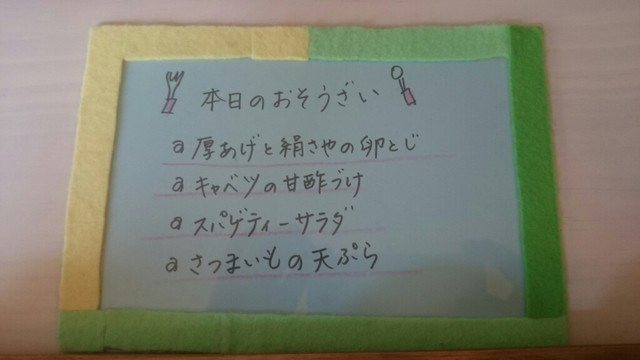 本日のおそうざい
a 厚あげと絹さやの卵とじ
a キャベツの甘酢づけ
a スパゲティーサラダ
a さつまいもの天ぷら